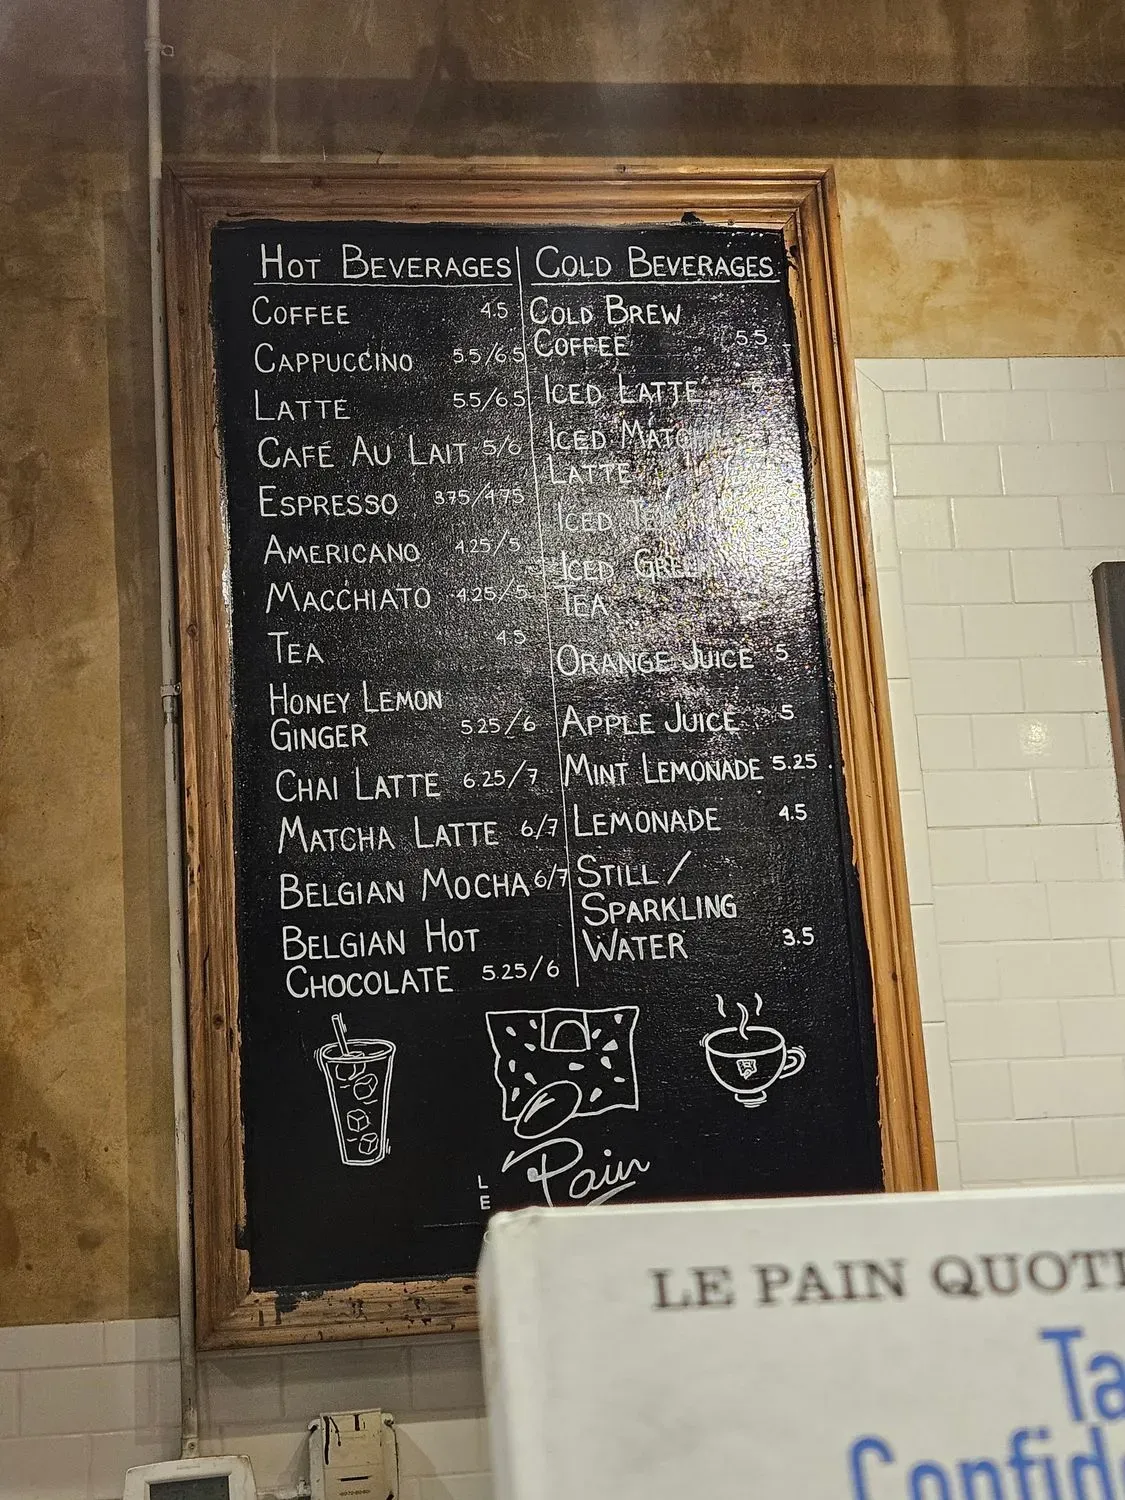 HOT BEVERAGES
COFFEE 4.5
CAPPUCCINO 5.5/6.5
LATTE 5.5/6.5
CAFÉ AU LAIT 5/6
ESPRESSO 3.75/4.75
AMERICANO 4.25/5
MACCHIATO 4.25/5
TEA 4.5
HONEY LEMON
GINGER 5.25/6
CHAI LATTE 6.25/7
MATCHA LATTE 6/7
BELGIAN MOCHA 6/7
BELGIAN HOT
CHOCOLATE 5.25/6
COLD BEVERAGES
COLD BREW
COFFEE 5.5
ICED LATTE
ICED MATCHA
LATTE
ICED TEA
ICED GREEN
TEA
ORANGE JUICE 5
APPLE JUICE 5
MINT LEMONADE 5.25
LEMONADE 4.5
STILL/
SPARKLING
WATER 3.5
LE Pain
LE PAIN QUOTI
Ta
Confid